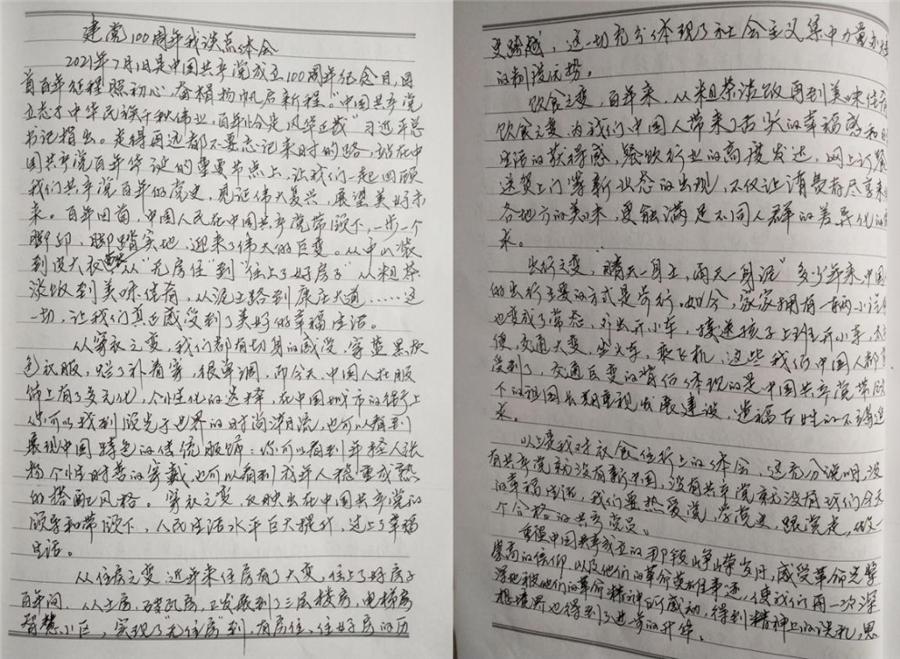 建党100周年我谈点体会
2021年7月1日是中国共产党成立100周年纪念日,回
首百年征程照初心,奋楫扬帆启新程。"中国共产党
立志于中华民族千秋伟业,百年恰是风华正茂"习近平总
书记指出。走得再远都不要忘记来时的路,站在中
国共产党百年华诞的重要节点上,让我们一起回顾
我们共产党百年的党史,见证伟大复兴,展望美好未
来。百年回首,中国人民在中国共产党带领下,一步一个
脚印,脚踏实地,迎来了伟大的巨变。从中山装
到时大衣,从"无房住"到"住上了好房子"从粗茶
淡饭到美味佳肴,从泥土路到康庄大道……这
一切,让我们真正感受到了美好的幸福生活。
从穿衣之变,我们都有切身的感受,穿蓝黑灰
色衣服,烂了补着穿,很单调,而今天,中国人在服
饰上有了多元化,个性化的选择,在中国城市的街上
你可以找到领先于世界的时尚潮流,也可以看到
展现中国特色的传统服饰;你可以看到年轻人张
扬个性时髦的穿戴,也可以看到成年人稳重成熟
的搭配风格。穿衣之变,反映出在中国共产党的
领导和带领下,人民生活水平巨大提升,过上了幸福
生活。
从住房之变 近年来住房有了大变,住上了好房子
百年间,从土房,砖瓦房,又发展到了三层楼房,电梯房
智慧小区,实现了"无住房"到,有房住,住好房的历
史跨越,这一切充分体现了社会主义集中力量办
的制度优势。
饮食之变,百年来,从粗茶淡饭再到美味佳肴
饮食之变,为我们中国人带来了舌尖的幸福感和
生活的获得感,餐饮行业的高度发达,网上订餐
送货上门等新业态的出现,不仅让消费者尽享来
各地方的美味,更能满足不同人群的差异化的
求。
出行之变,"晴天一身土,雨天一身泥"多少年来中国
的出行主要的方式是步行。如今,家家拥有一辆小汽
也变成了常态,外出开小车,接送孩子上班开小车,
便,交通大变,坐火车,乘飞机,这些我们中国人都
受到了,交通巨变的背后体现的是中国共产党带领
下的祖国长期重视发展建设,造福百姓的不懈追
求。
以上是我对衣食住行上的体会,这充分说明,没
有共产党就没有新中国,没有共产党就没有我们今天
的幸福生活,我们要热爱党,学党史,跟党走,做一
个合格的共产党员。
重温中国共产党成立的那段峥嵘岁月,感受革命先辈
崇高的信仰,以及他们的革命英雄事迹,使我们再一次深
深地被他们的革命精神所感动,得到精神上的洗礼,思
想境界也得到了进步的升华。